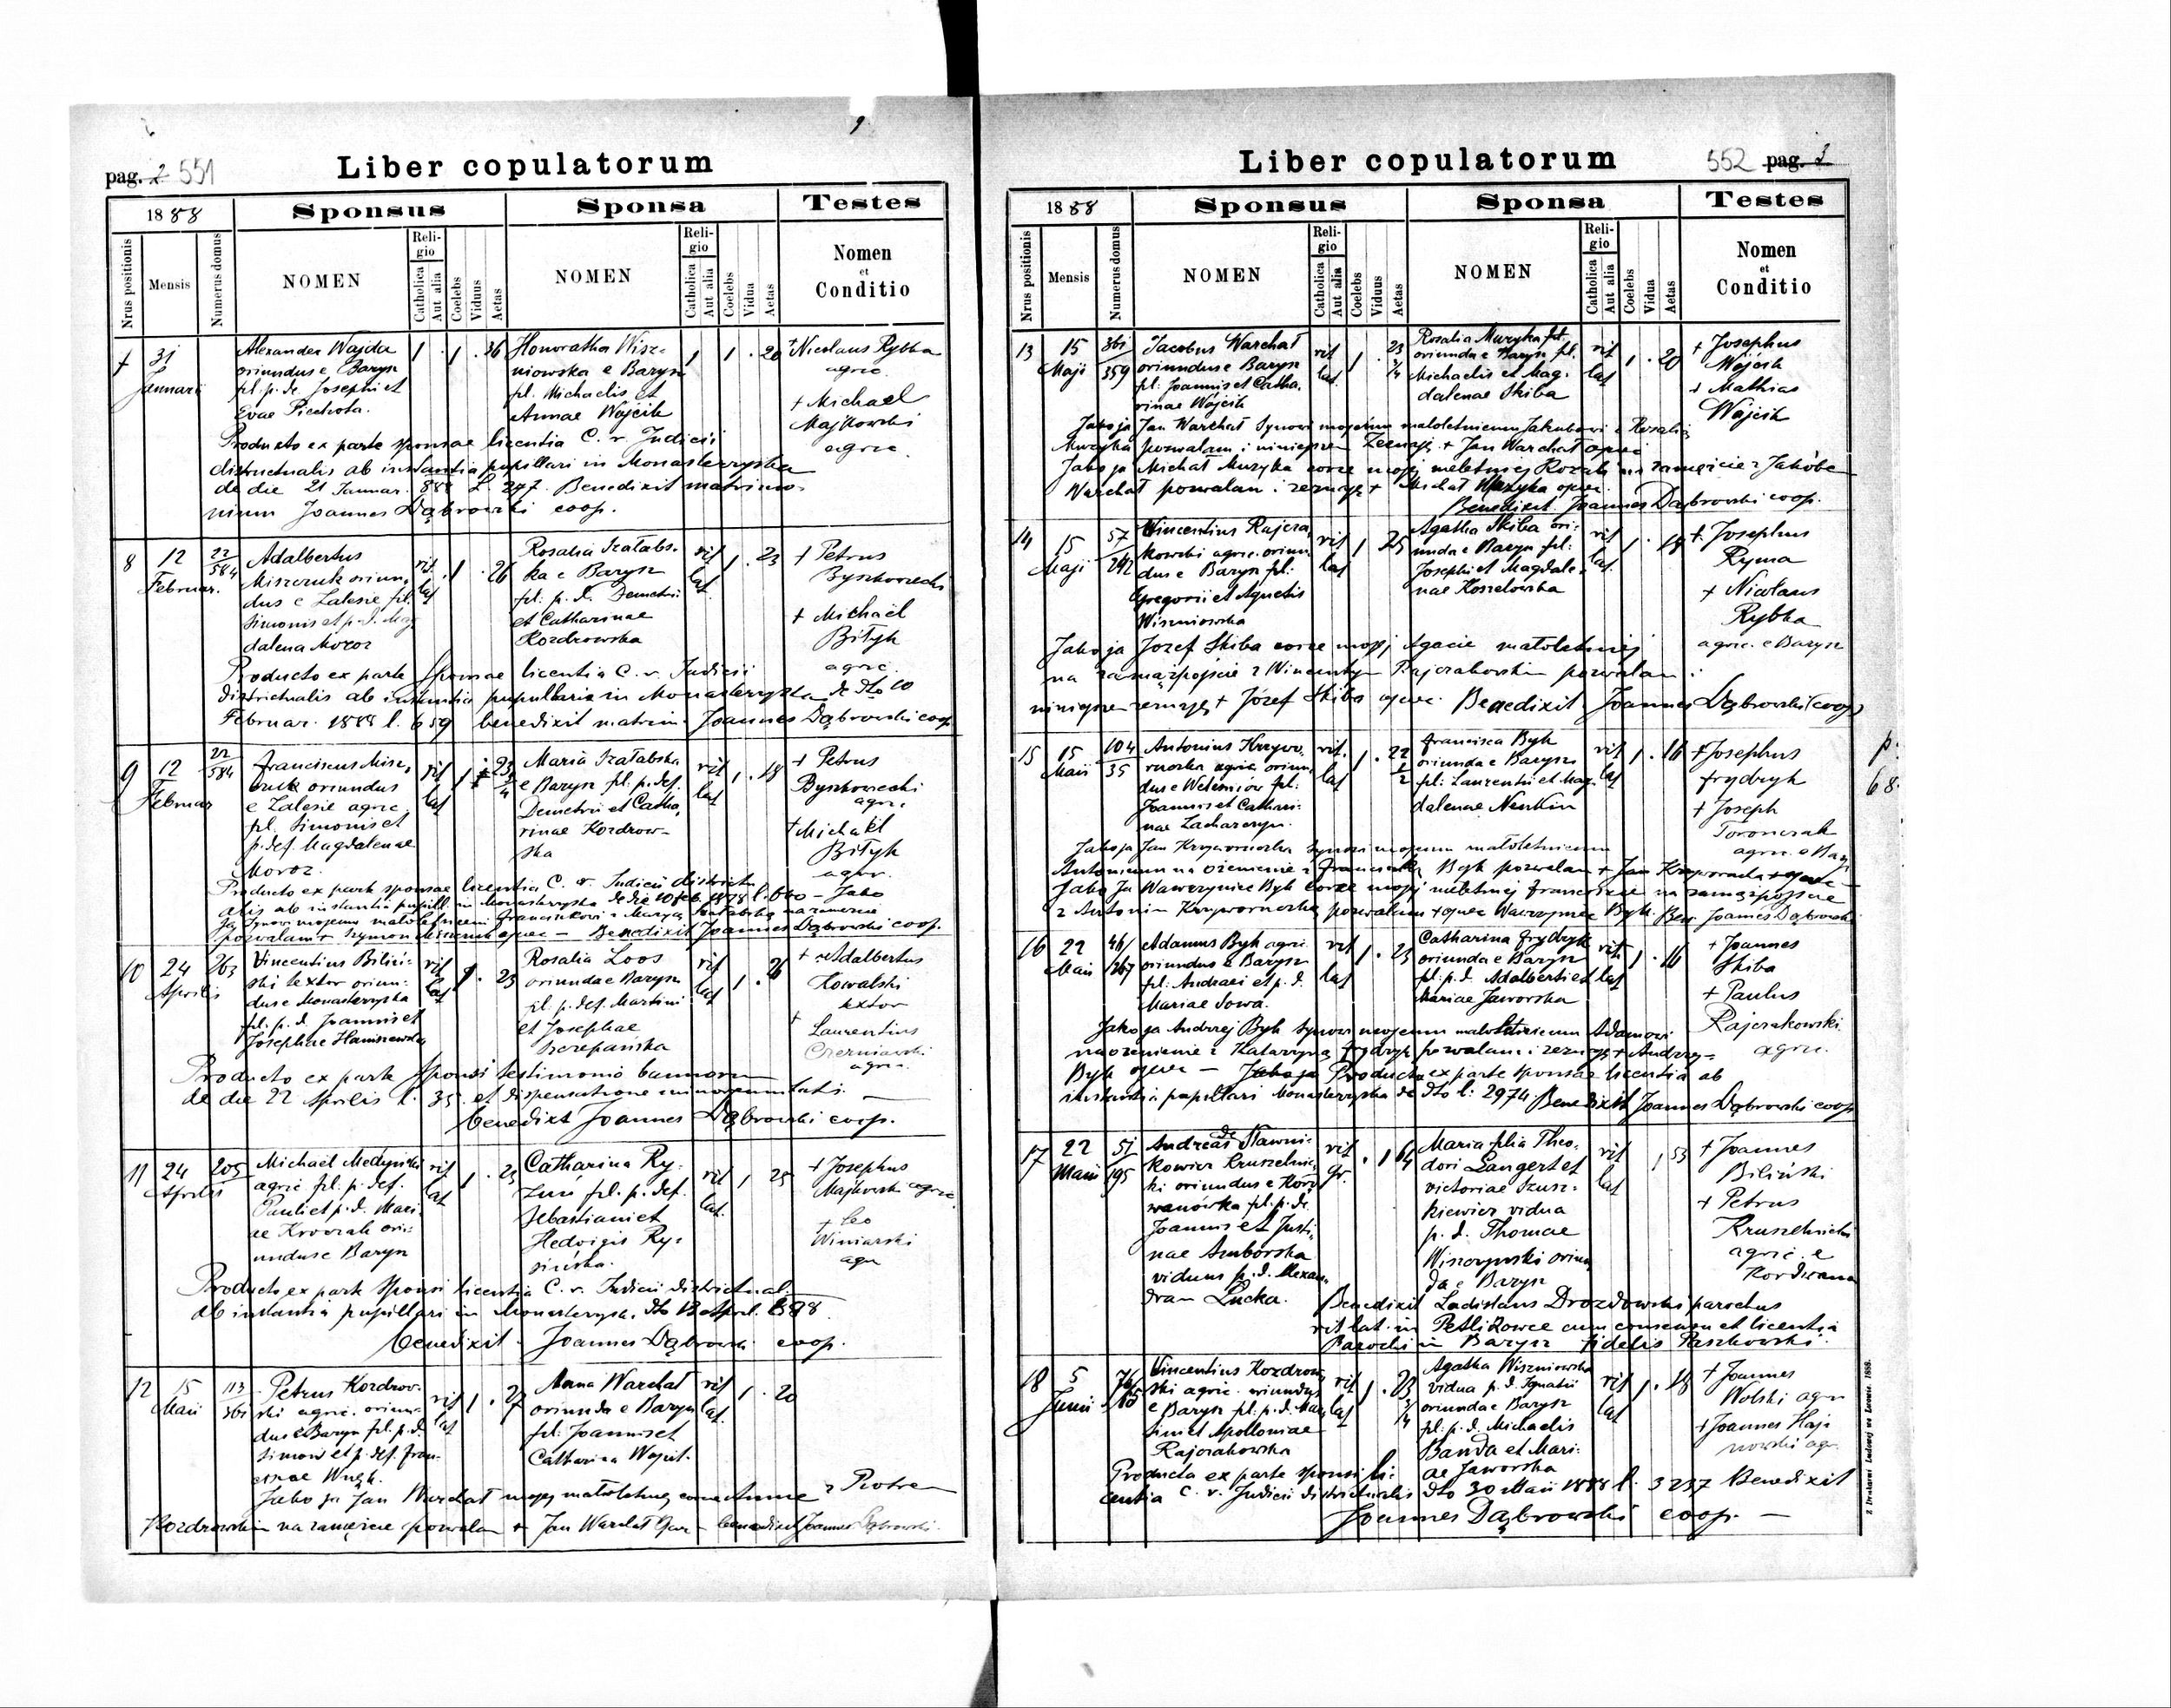 pag. 2 551
Liber copulatorum
1888
Sponsus
Sponsa
Testes
Nrus positionis
Mensis
Numerus domus
NOMEN
Religio
Catholica
Aut alia
Coelebs
Viduus
Aetas
NOMEN
Religio
Catholica
Aut alia
Coelebs
Vidua
Aetas
Nomen
et
Conditio
7 31 Januarii
Alexander Wajda
oriundus e Barysz
fil. p. de. Josephi et
Evae Piechota.
1 . 1 . 36
Honoratha Wisz-
niowska e Barysz
fil. Michaelis et
Annae Wojcik
1 1 . 20
+ Nicolaus Rybka
agric.
+ Michael
Majkowski
agric.
Producto ex parte sponsae licentia C. r. Judicii
districtualis ab instantia pupillari in Monasterzyska
de die 21 Januar. 888 L. 247. Benedixit matrimo-
nium Joannes Dąbrowski coop.
8 12 Februar. 22/584
Adalbertus
Miszczuk oriun-
dus e Zalesie fil.
Simonis et p. d. Mag
dalena Moroz
rit. lat 1 . 26
Rosalia Szałabs-
ka e Barysz
fil. p. d. Demetrii
et Catharinae
Kozdrowska
rit lat. 1 . 23
+ Petrus
Byszkowiecki
+ Michael
Biłyk
agric.
Producto ex parte Sponsae licentia C. r. Judicii
districtualis ab instantia pupillaris in Monasterzyska de dto 10
Februar. 1888 l. 659 benedixit matrim. Joannes Dąbrowski coop
9 12 Februar 22/584
Franciscus Misz-
czuk oriundus
e Zalesie agric.
fil. Simonis et
p. def. Magdalenae
Moroz.
rit lat 1 . 23
Maria Szałabska
e Barysz fil. p. def.
Demetrii et Catha-
rinae Kozdrow-
ska
rit lat 1 . 18
+ Petrus
Byszkowiecki
agric.
+ Michael
Biłyk
agric.
Producto ex parte sponsae licentia C. r. Judicii district
alis ab instantia pupill. in Monasterzyska de die 10 feb. 1878 l. 660 – Jako
Ja Synowi mojemu małoletniemu Franciszkowi z Maryą Szałabską na
pozwalam + Szymon Miszczuk ojciec – Benedixit Joannes Dąbrowski coop.
10 24 Aprilis 263
Vincentius Biliń-
ski textor oriun-
dus e Monasterzyska
fil. p. d. Joannis et
Josephae Haniszewska
rit lat 1 . 23
Rosalia Loos
oriunda e Barysz
fil. p. def. Martini
et Josephae
Szczepańska
rit lat 1 . 26
+ Adalbertus
Kowalski
textor
+ Laurentius
Czerniawski
agric.
Producto ex parte Sponsi testimonio bannorum
de die 22 Aprilis l. 35 et dispensatione minorennitatis. —
benedixit Joannes Dąbrowski coop.
11 24 Aprilis 205
Michael Medyński
agric fil. p. def.
Pauli et p. d. Mari-
ae Krovzak ori-
undus e Barysz
rit lat 1 . 23
Catharina Ry-
fil. p. def.
Sebastiani et
Hedvigis Ry-
sińska.
rit lat. 1 25
+ Josephus
Majkowski agric
+ Leo
Winiarski
agr
Producto ex parte Sponsi licentia C. r. Judicii districtual.
ab instantia pupillari in Monasterzysk.
benedixit . Joannes Dąbrowski coop.
12 15 Maii 113/361
Petrus Kozdrow-
ski agric. oriun-
dus e Barysz fil. p. d.
Simonis et p. def. Fran-
rit lat 1 . 27
Anna Warchał
oriunda e Barysz
fil. Joannis et
Catharina Wojcik.
rit lat. 1 . 20
Jako ja Jan Warchał mojej małoletniej córce Annie z Piotrem
Kozdrowskim na zamęście pozwalam + Jan Warchał ojciec – benedixit Joannes Dąbrowski.
Liber copulatorum
552 pag. 3
1888
Sponsus
Sponsa
Testes
Nrus positionis
Mensis
Numerus domus
NOMEN
Religio
Catholica
Aut alia
Coelebs
Viduus
Aetas
NOMEN
Religio
Catholica
Aut alia
Coelebs
Vidua
Aetas
Nomen
et
Conditio
13 15 Maji 361/359
Jacobus Warchał
oriundus e Barysz
fil. Joannis et Catha-
rinae Wojcik
rit lat 1 . 23 1/4
Rosalia Muzyka fil.
oriunda e Barysz fil.
Michaelis et Mag-
dalenae Skiba
rit lat 1 . 20
+ Josephus
Wojcik
+ Mathias
Wojcik
Jako ja Jan Warchał Synowi mojemu małoletniemu Jakubowi z Rosalią
Muzyka pozwalam i niniejszem zeznaję + Jan Warchał ojciec
Jako ja Michał Muzyka córce mojej małoletniej Rozalii na zamęście z Jakóbem
Warchał pozwalam i zeznaję + Michał Muzyka ojciec.
Benedixit Joannes Dąbrowski coop.
14 15 Maji 57/242
Vincentius Rajcza-
kowski agric. oriun-
dus e Barysz fil:
Gregorii et Agnetis
Wiszniowska
rit lat 1 25
Agatha Skiba ori-
unda e Barysz fil:
Josephi et Magdale-
nae Koszelowska
rit lat. 1 . 18
+ Josephus
Ryma
+ Nicolaus
Rybka
agric. e Barysz
Jako ja Jozef Skiba córce mojej Agacie małoletniej
na zamążpójście z Wincentym Rajczakowskim pozwalam i
niniejszem zeznaję + Józef Skiba ojciec. Benedixit Joannes Dąbrowski (coop)
15 15 Maii 104/35
Antonius Krzywo-
rnoska agric. oriun-
dus e Weleśniów fil:
Joannis et Cathari-
nae Zacharczyn.
rit. lat 1 . 22 1/2
Francisca Byk
oriunda e Barysz
fil: Laurentii et Mag-
dalenae
rit lat 1 . 16
+ Josephus
Frydryk
+ Joseph
Toronczak
agric. e Barysz
p.
68.
Jako ja Jan synowi mojemu małoletniemu
Antoniemu na ożenienie z Franciszką Byk pozwalam + Jan
Jako Ja Wawrzyniec Byk córce mojej małoletniej Franciszce na zamążpójście
z Antonim pozwalam + ojciec Wawrzyniec Byk. Ben. Joannes Dąbrowski
16 22 Maii 46/267
Adamus Byk agric
oriundus e Barysz
fil. Andraei et p. d.
Mariae Sowa.
rit lat 1 . 23
Catharina Frydryk
oriunda e Barysz
fil. p. d. Adalberti et
Mariae Jaworska
rit. lat 1 . 16
+ Joannes
Skiba
+ Paulus
Rajczakowski
agric.
Jako ja Andrzej Byk Synowi mojemu małoletniemu Adamowi
na ożenienie z Katarzyną Frydryk pozwalam i zeznaję + Andrzej
Byk ojciec — Jako ja Producto ex parte sponsae licentia ab
instantia pupillari Monasterzyska de dto l: 2974 Benedixit Joannes Dąbrowski coop
17 22 Maii 51/195
Andreas de Sławni-
kowicz Kruszelnic-
ki oriundus e Kord
wanówka fil. p. de.
Joannis et Justi-
nae Amborska
viduus p. d. Alexan-
dram Łucka.
rit gr. . 1 64
Maria filia Theo-
dori Langert et
Victoriae Szusz-
kiewicz vidua
p. d. Thomae
Wiszorynski oriun
da e Barysz
rit lat 1 53
+ Joannes
Biliński
+ Petrus
Kruszelnicki
agric. e
Kordwana
Benedixit Ladislaus Drozdowski parochus
rit. lat. in Petlikowce cum consensu et licentia
Parochi in Barysz Fidelis Paszkowski.
18 5 Junii
Vincentius Kozdrow-
ski agric. oriundus
e Barysz fil. p. d. Max-
imi et Apolloniae
Rajczakowska
rit lat 1 . 23 3/4
Agatha Wiszniowska
vidua p. d. Ignatii
oriunda e Barysz
fil. p. d. Michaelis
Banda et Mari-
ae Jaworska
rit lat 1 . 18
+ Joannes
Wolski agr
+ Joannes Haj-
nowski agr.
Producta ex parte sponsi li-
centia C. r. Judicii districtualis dto 30 Maii 1888 l. 3237 Benedixit
Joannes Dąbrowski coop. —
Z Drukarni Ludowej we Lwowie. 1888.